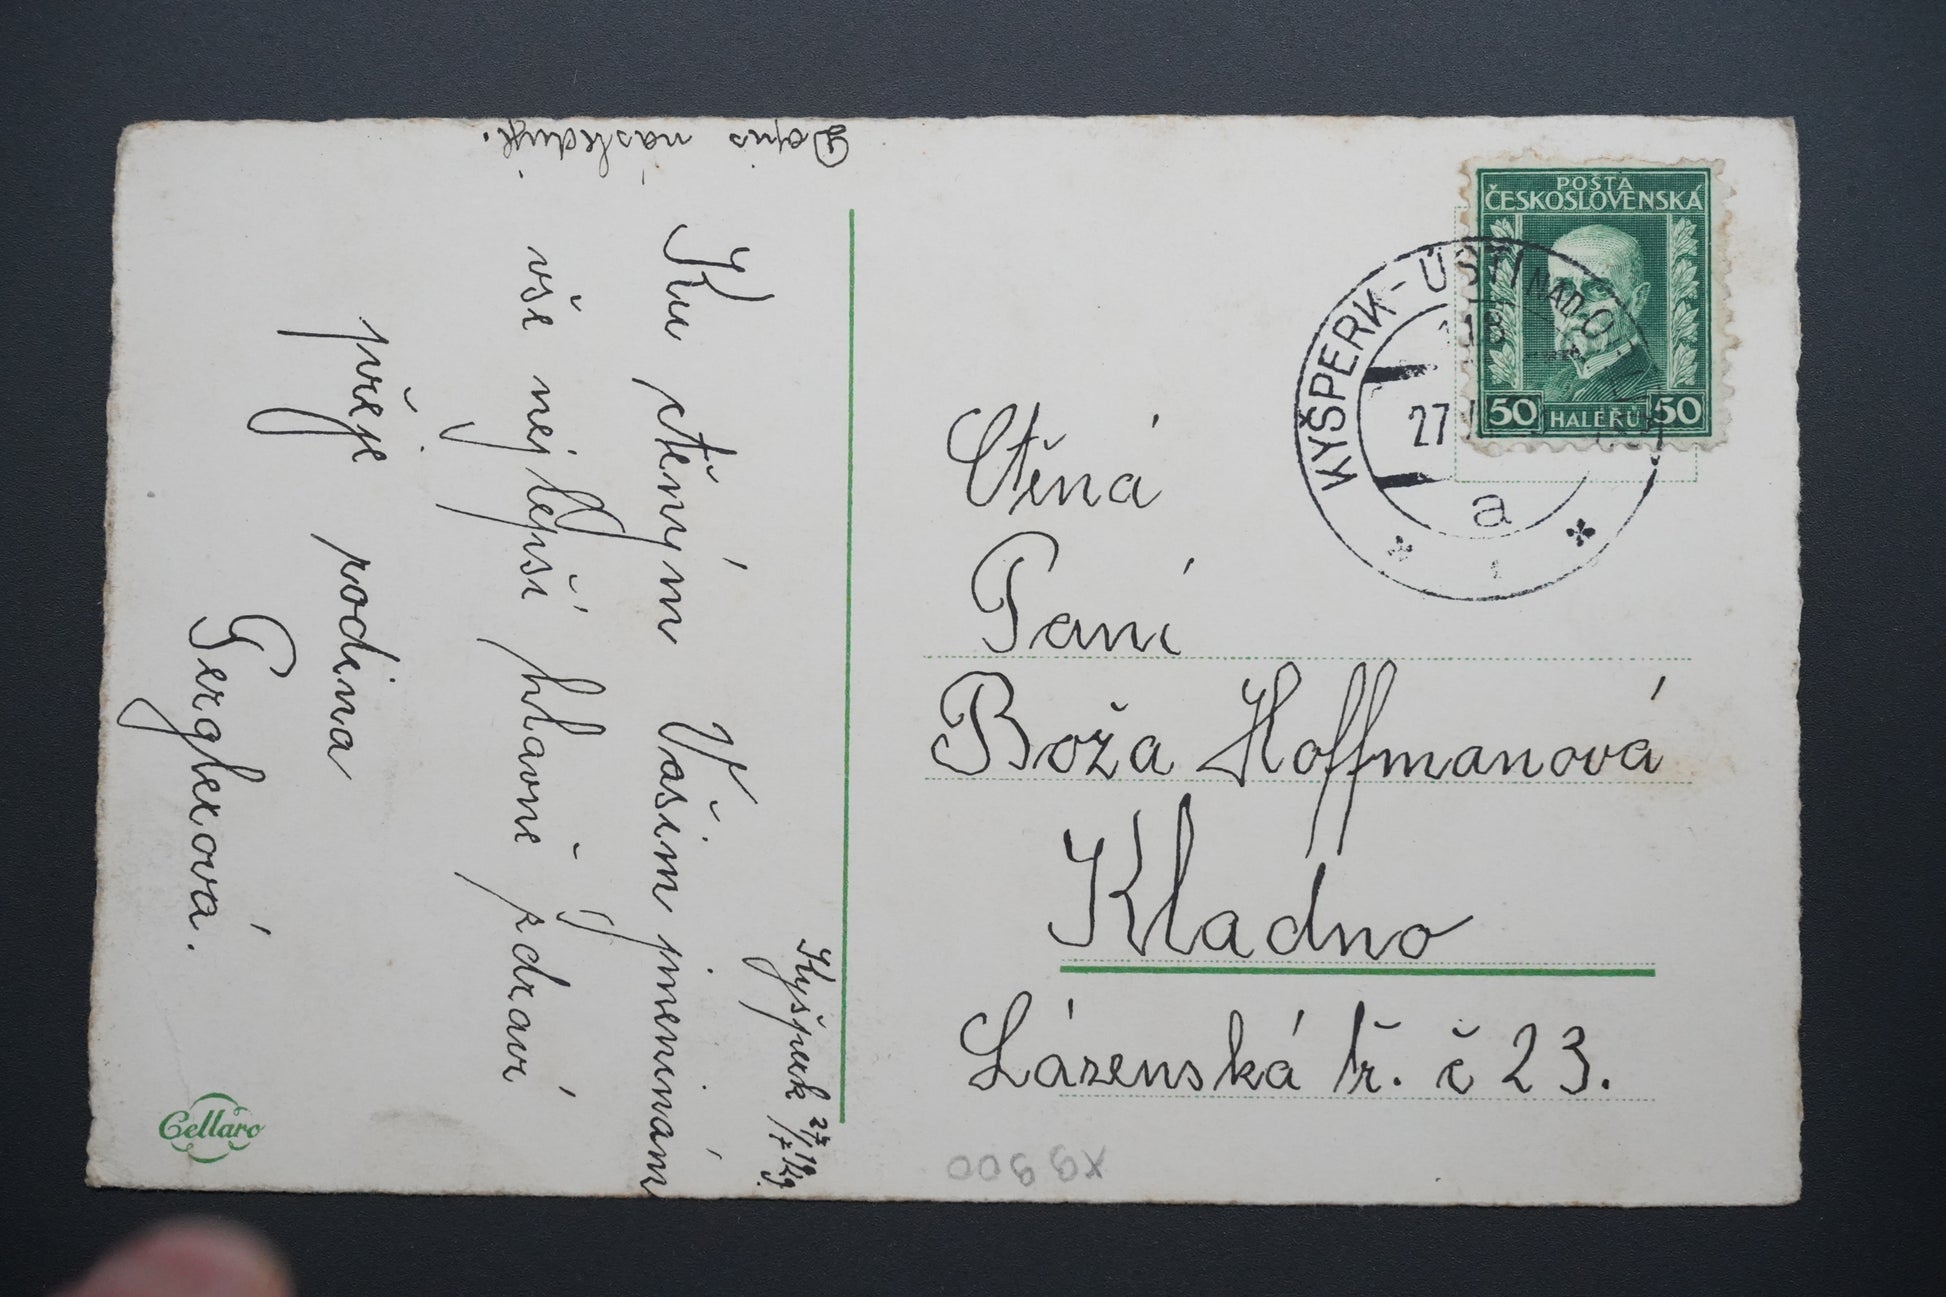 Dopis následuje.
Kyšperk 27/7 1929.
Ku ctěným Vašim jmeninám
vše nejlepší hlavně zdraví
přeje rodina
Gerglerová.
Cellaro
POŠTA
ČESKOSLOVENSKÁ
50 HALÉŘŮ 50
KYŠPERK-ÚSTÍ NAD O
18
27
a
Ctěná
Paní
Boža Hoffmanová
Kladno
Lázenská tř. č 23.